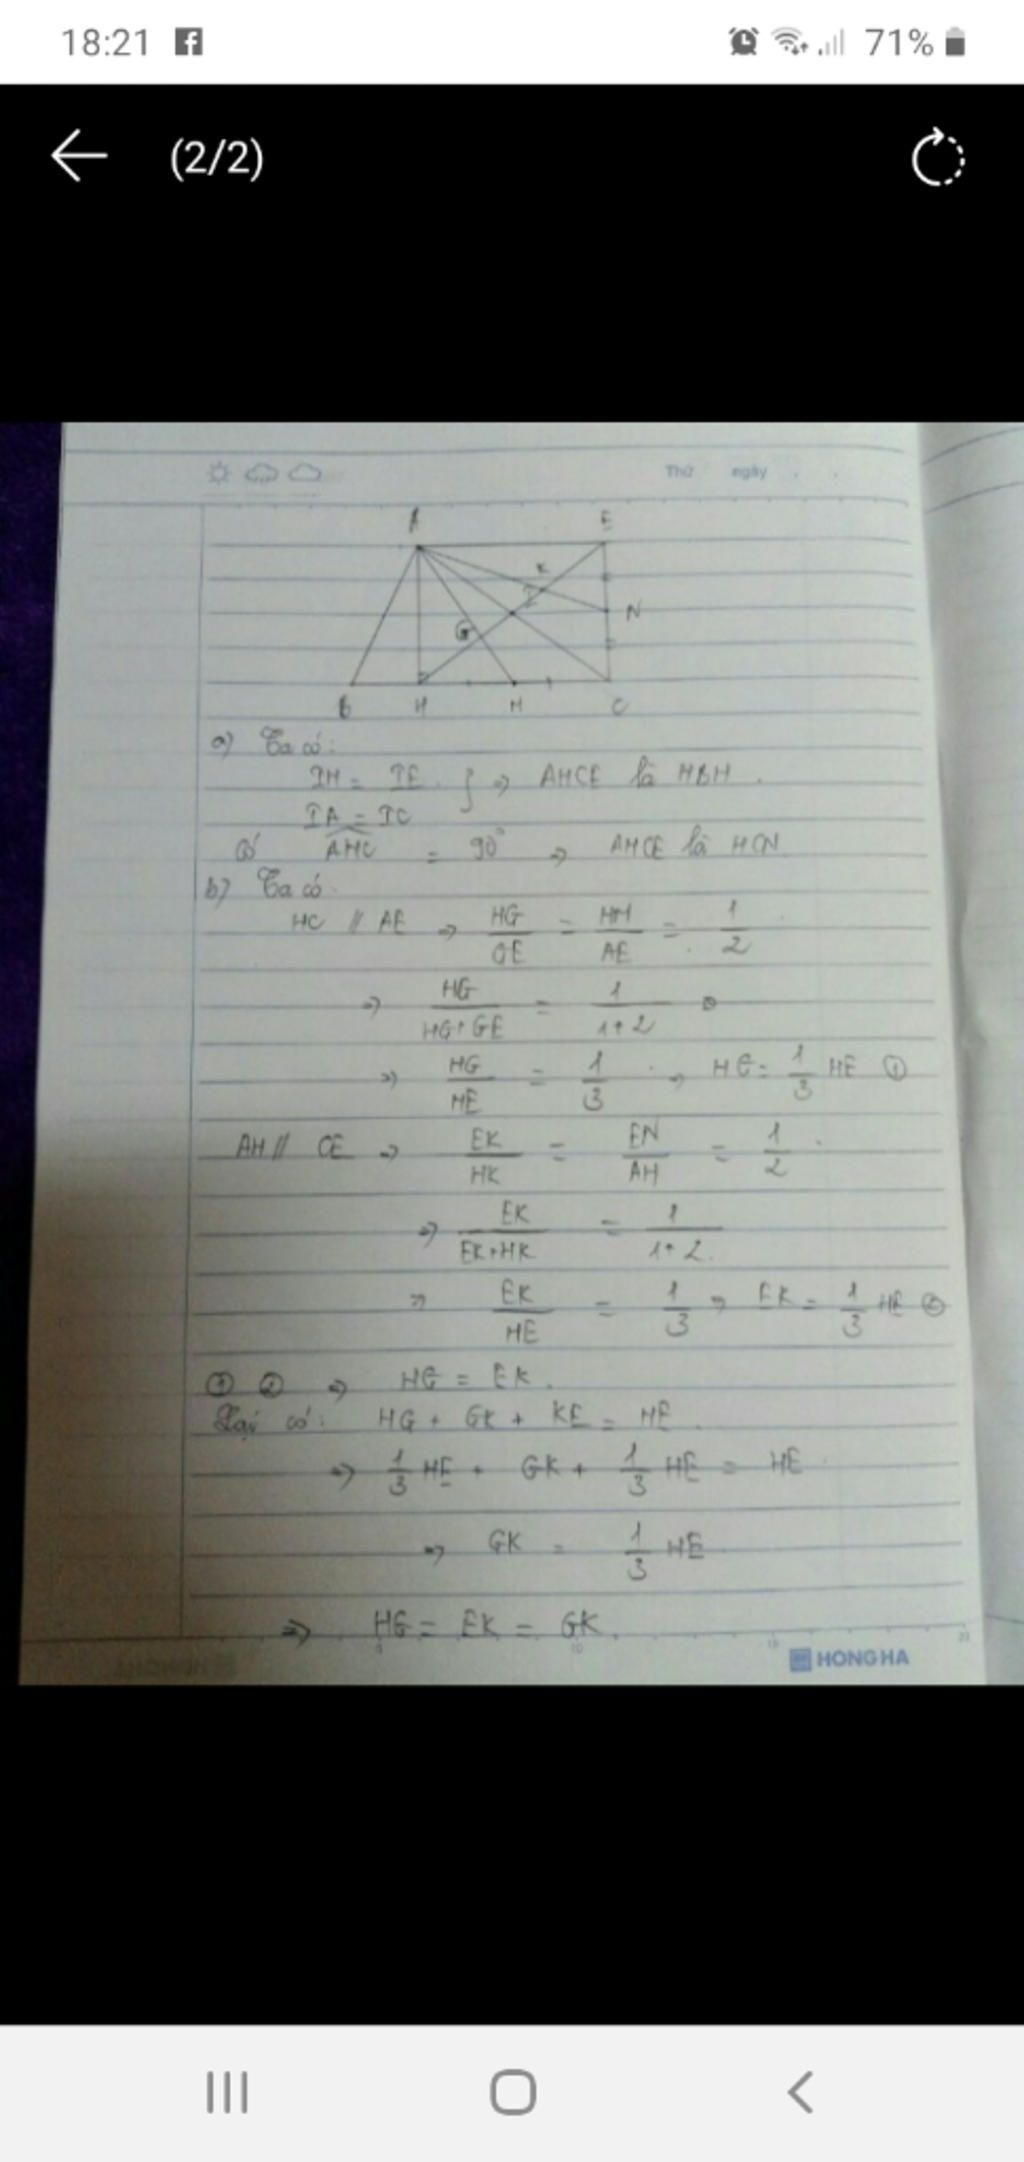 18:21 71%
(2/2)
Thứ ngày
A E
K
I N
G
B H M C
a) Ta có:
IH = IE } => AHCE là HBH.
IA = IC
Có AHC = 90° => AHCE là HCN
b) Ta có.
HC // AE => HG/GE = HM/AE = 1/2
=> HG/HG+GE = 1/1+2
=> HG/HE = 1/3 => HG = 1/3 HE ①
AH // CE => EK/HK = EN/AH = 1/2.
=> EK/EK+HK = 1/1+2.
=> EK/HE = 1/3 => EK = 1/3 HE ②
① ② => HG = EK.
Lại có: HG + GK + KE = HE.
=> 1/3 HE + GK + 1/3 HE = HE
=> GK = 1/3 HE
=> HG = EK = GK.
5 10 15 20
HONG HA